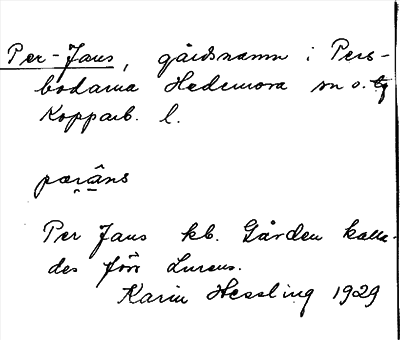 Per-Jans, gårdsnamn i Pers-
bodarna Hedemora sn o. tg
Kopparb. l.
pærâns
Per Jans kb. Gården kalla-
des förr Lurens.
Karin Hessling 1929